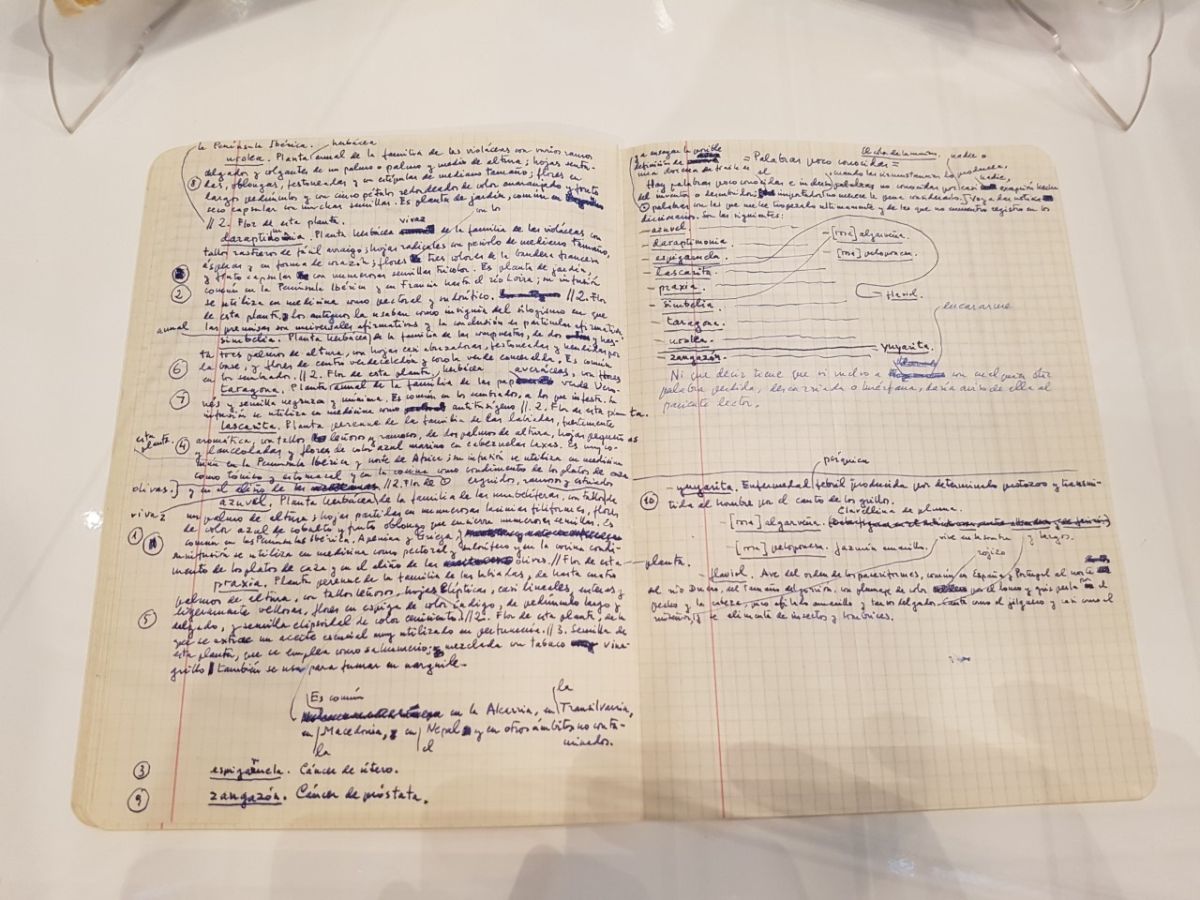 la Península Ibérica. herbácea
urolea. Planta anual de la familia de las violáceas con varios ramos
delgados y colgantes de un palmo o palmo y medio de altura; hojas senta-
das, oblongas, festoneadas y con estípulas de mediano tamaño; flores en
8 largos pedúnculos y con cinco pétalos redondeados de color anaranjado y fruto
seco capsular con muchas semillas. Es planta de jardín, común en
// 2. Flor de esta planta. vivaz
Planta herbácea de la familia de las violáceas con
con los
tallos rastreros de fácil arraigo; hojas radicales con peciolo de mediano tamaño,
ásperas y en forma de corazón; flores tres colores de la bandera francesa
y fruto capsular con numerosas semillas tricolor. Es planta de jardín,
2 común en la Península Ibérica y en Francia hasta el río Loira; su infusión
se utiliza en medicina como pectoral y sudorífico. // 2. Flor
de esta planta. Los antiguos la usaban como insignia del silogismo en que
las premisas son universales afirmativas y la conclusión es particular afirmativa.
anual
simbelia. Planta herbácea de la familia de las compuestas, de dos y has-
ta tres palmos de altura, con hojas casi abrazadoras, festoneadas y hendidas por
6 la base, y flores de centro verdeceledón y corola verde esmeralda. Es común
en los sembrados. // 2. Flor de esta planta. herbácea averáceas, con flores
taragona. Planta anual de la familia de las verde Vero-
7 nés y semilla negruzca y mínima. Es común en los sembrados, a los que infesta. Su
infusión se utiliza en medicina como antitusígeno // 2. Flor de esta planta.
lascarita. Planta perenne de la familia de las labiadas, fuertemente
esta planta. 4 aromática, con tallos leñosos y ramosos, de dos palmos de altura, hojas pequeñas
y lanceoladas y flores de color azul marino en cabezuelas laxas. Es muy co-
mún en la Península Ibérica y norte de África; su infusión se utiliza en medicina
como tónico y estomacal y en la cocina como condimento de los platos de caza
olivas. y en el aliño de las // 2. Flor de erguidos, ramosos y estriados
azuvel. Planta herbácea de la familia de las umbelíferas, con tallos de
vivaz
un palmo de altura; hojas partidas en numerosas lacinias filiformes, flores
de color azul de cobalto y fruto oblongo que encierra numerosas semillas. Es
1 común en las Penínsulas Ibérica, Apenina y Griega;
su infusión se utiliza en medicina como pectoral y sudorífero y en la cocina condi-
mento de los platos de caza y en el aliño de las olivas. // Flor de esta planta.
praxia. Planta perenne de la familia de las labiadas, de hasta cuatro
palmos de altura, con tallos leñosos, hojas elípticas, casi lineales, enteras y
5 ligeramente vellosas, flores en espiga de color índigo, de pedúnculo largo y
delgado, y semilla elipsoidal de color ceniciento // 2. Flor de esta planta, de la
que se extrae un aceite esencial muy utilizado en perfumería. // 3. Semilla de
esta planta, que se emplea como sahumerio; mezclada con tabaco
también se usa para fumar en narguile.
Es común
en la Alcarria, en la Transilvania,
en la Macedonia, en el Nepal y en otros ámbitos no conta-
minados.
3 espiganuela. Cáncer de útero.
9 zangazón. Cáncer de próstata.
= Palabras poco conocidas =
Hay palabras poco conocidas
palabras con las que me he tropezado últimamente y de las que no encuentro registro en los
diccionarios. Son las siguientes:
- azuvel
- daraptimonia
- espiganuela
- lascarita
- praxia
- simbelia
- taragona
- urolea
- zangazón
- [rosa] algarveña.
- [rosa] peloponesa.
flaviol.
yuyarita.
encararme
Ni que decir tiene que si vuelvo a con cualquier otra
palabra perdida, descarriada o huérfana, daría aviso de ella al
paciente lector.
psíquica
10 - yuyarita. Enfermedad febril producida por determinados protozoos y transmi-
tida al hombre por el canto de los grillos.
Clavellina de pluma.
- [rosa] algarveña.
- [rosa] peloponesa. Jazmín amarillo.
rojizo y largos.
flaviol. Ave del orden de los paseriformes, común en España y Portugal al norte
del río Duero, del tamaño del gorrión, con plumaje de color por el lomo y gris por el
pecho y la cabeza, pico afilado amarillo y tarsos delgados. Canta como el jilguero y casi como el
ruiseñor, y se alimenta de insectos y lombrices.